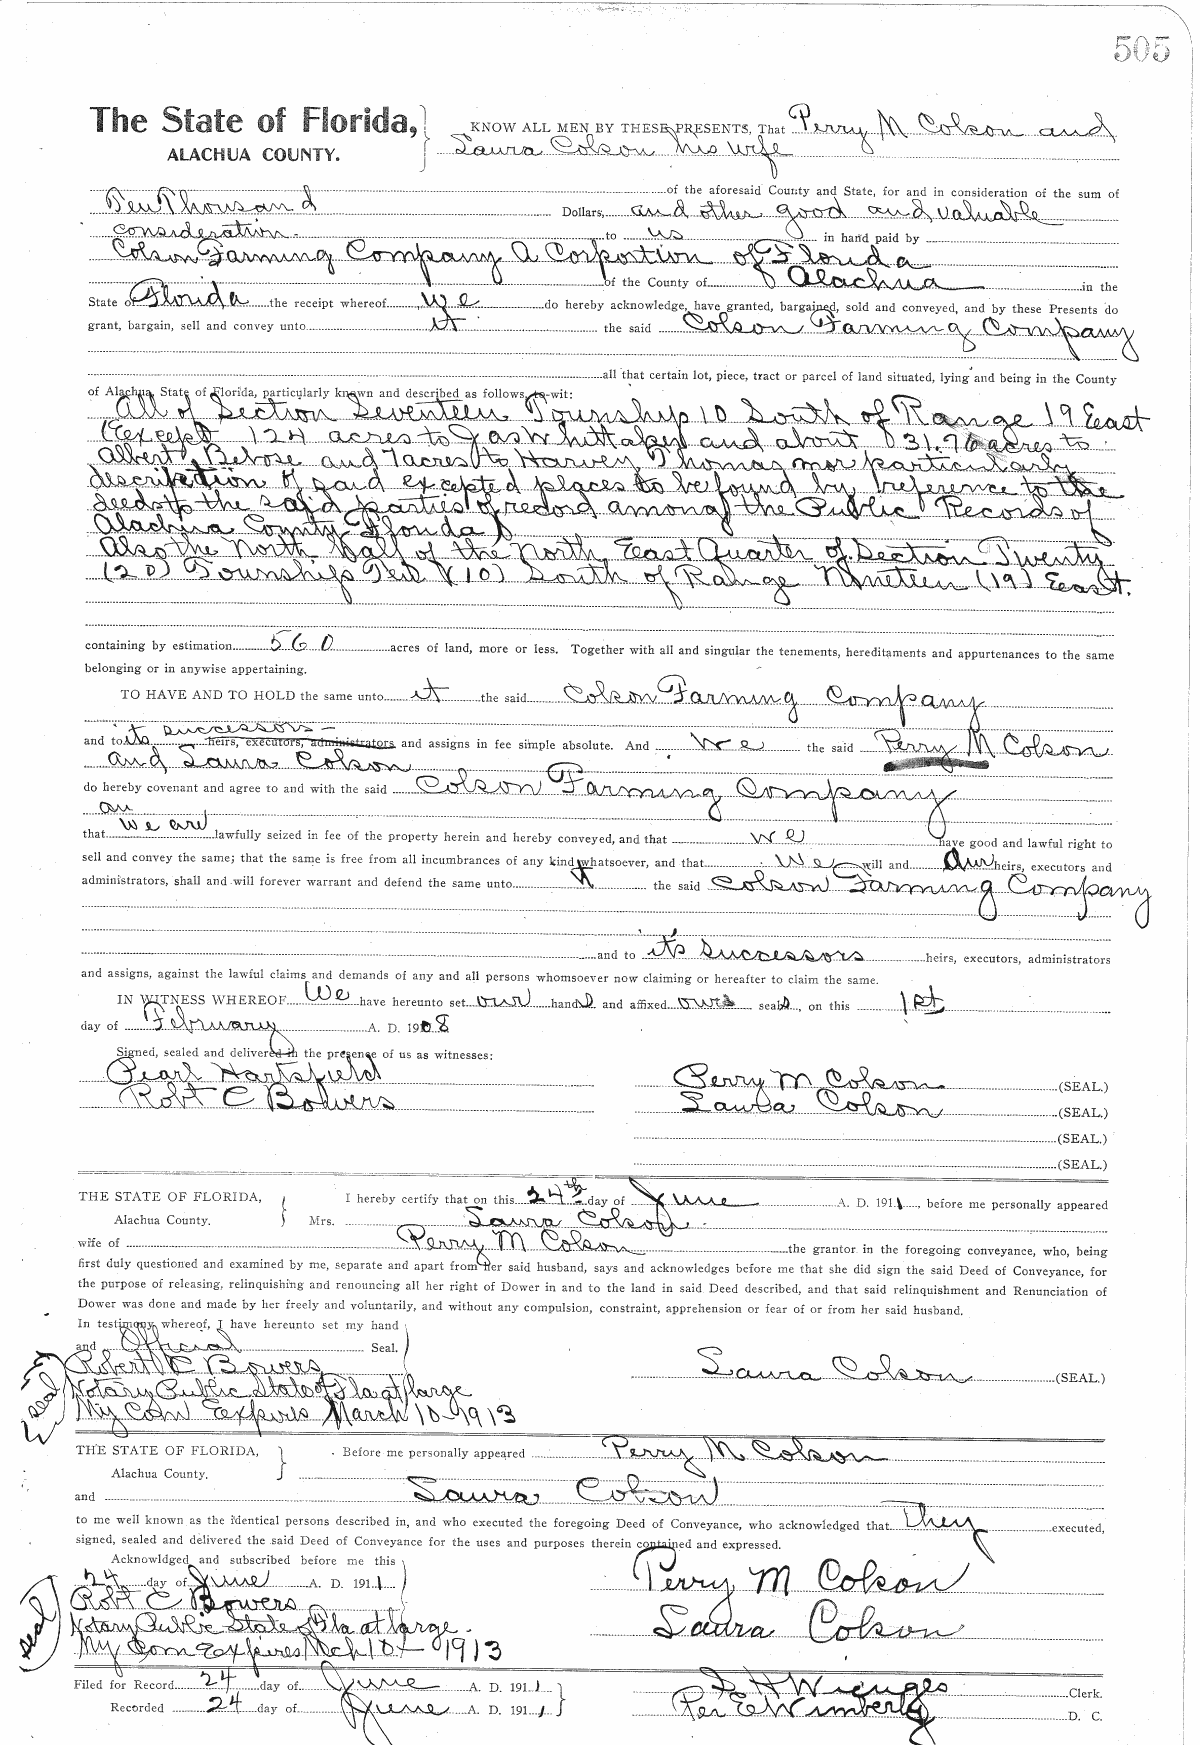 505
The State of Florida, KNOW ALL MEN BY THESE PRESENTS, That Perry M Colson and
ALACHUA COUNTY. Laura Colson his wife
of the aforesaid County and State, for and in consideration of the sum of
Ten Thousand Dollars, and other good and valuable
consideration. to us in hand paid by
Colson Farming Company A Corportion of Florida
of the County of Alachua in the
State of Florida the receipt whereof we do hereby acknowledge, have granted, bargained, sold and conveyed, and by these Presents do
grant, bargain, sell and convey unto it the said Colson Farming Company
all that certain lot, piece, tract or parcel of land situated, lying and being in the County
of Alachua, State of Florida, particularly known and described as follows, to-wit:
All of Section Seventeen Township 10 South of Range 19 East
(Except 124 acres to Jas Whittaker and about 31.76 acres to
Albert Bebose and 7 acres to Harvey Thomas mor particularly
discribtion of said excepted places to be found by reference to the
deeds to the said parties of record among the Public Records of
Alachua County Florida)
Also the North half of the North East Quarter of Section Twenty
(20) Township Ten (10) South of Range Nineteen (19) East.
containing by estimation 560 acres of land, more or less. Together with all and singular the tenements, hereditaments and appurtenances to the same
belonging or in anywise appertaining.
TO HAVE AND TO HOLD the same unto it the said Colson Farming Company
its successors -
and to its heirs, executors, administrators and assigns in fee simple absolute. And we the said Perry M Colson
and Laura Colson
do hereby covenant and agree to and with the said Colson Farming Company
an
that we are lawfully seized in fee of the property herein and hereby conveyed, and that we have good and lawful right to
sell and convey the same; that the same is free from all incumbrances of any kind whatsoever, and that we will and our heirs, executors and
administrators, shall and will forever warrant and defend the same unto it the said Colson Farming Company
and to it's successors heirs, executors, administrators
and assigns, against the lawful claims and demands of any and all persons whomsoever now claiming or hereafter to claim the same.
IN WITNESS WHEREOF We have hereunto set our hands and affixed ours seals, on this 1st
day of February A. D. 1908
Signed, sealed and delivered in the presence of us as witnesses:
Pearl Hartsfield Perry M Colson (SEAL.)
Robt C Bowers Laura Colson (SEAL.)
(SEAL.)
(SEAL.)
THE STATE OF FLORIDA, I hereby certify that on this 24th day of June A. D. 1911, before me personally appeared
Alachua County. Mrs. Laura Colson
wife of Perry M Colson the grantor in the foregoing conveyance, who, being
first duly questioned and examined by me, separate and apart from her said husband, says and acknowledges before me that she did sign the said Deed of Conveyance, for
the purpose of releasing, relinquishing and renouncing all her right of Dower in and to the land in said Deed described, and that said relinquishment and Renunciation of
Dower was done and made by her freely and voluntarily, and without any compulsion, constraint, apprehension or fear of or from her said husband.
In testimony whereof, I have hereunto set my hand
and Official Seal.
Robert C Bowers Laura Colson (SEAL.)
seal Notary Public State of Fla at large
My Com Eexpires March 10-1913
THE STATE OF FLORIDA, Before me personally appeared Perry M Colson
Alachua County.
and Laura Colson
to me well known as the identical persons described in, and who executed the foregoing Deed of Conveyance, who acknowledged that They executed,
signed, sealed and delivered the said Deed of Conveyance for the uses and purposes therein contained and expressed.
Acknowldged and subscribed before me this
24 day of June A. D. 1911 Perry M Colson
Robt C Bowers
seal Notary Public State of Fla at large. Laura Colson
My Com Expires Mch 10 - 1913
Filed for Record 24 day of June A. D. 1911 S H Wienges Clerk.
Recorded 24 day of June A. D. 1911 Per E Wimberly D. C.